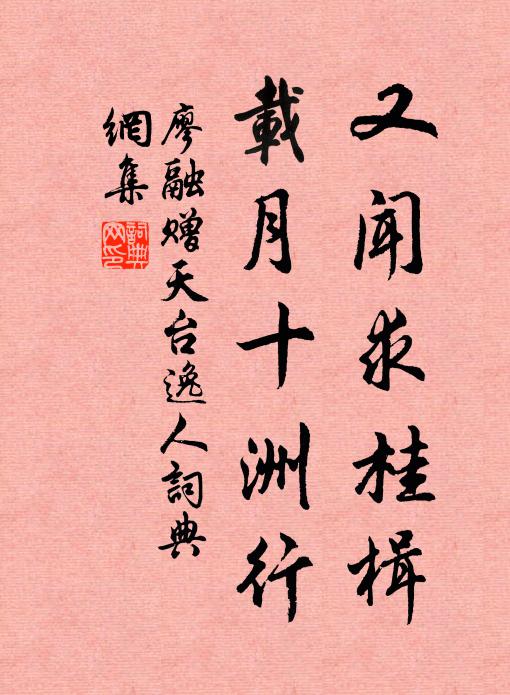 又闻求桂楫
載月十洲行
廖融赠天台逸人詞典
網集
詞典
网印